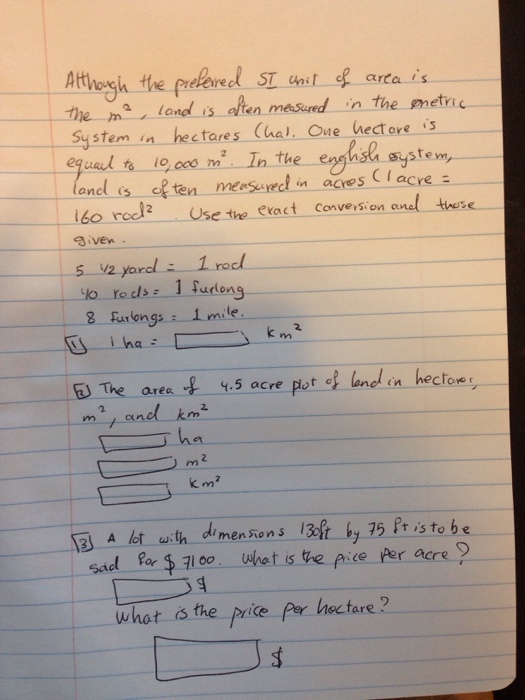 Although the prefered SI unit of area is
the m², land is often measured in the metric
system in hectares (ha). One hectare is
equal to 10,000 m². In the english system,
land is often measured in acres (1 acre =
160 rod² . Use the exact conversion and those
given.
5 1/2 yard = 1 rod
40 rods = 1 furlong
8 furlongs = 1 mile.
[1] 1 ha = km²
[2] The area of 4.5 acre plot of land in hectares,
m², and km²
ha
m²
km²
[3] A lot with dimensions 130ft by 75 ft is to be
sold for $ 7100. What is the price per acre?
$
What is the price per hectare?
$